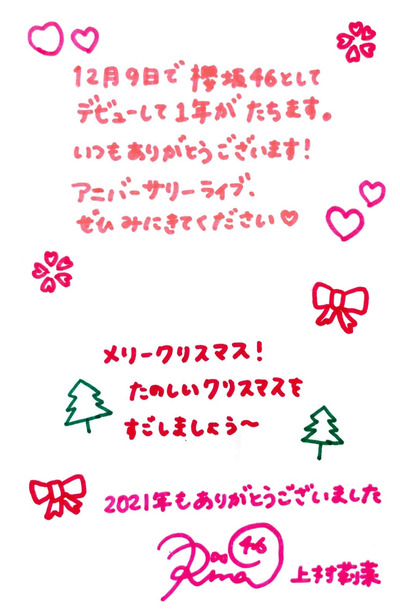 12月9日で櫻坂46として
デビューして1年がたちます。
いつもありがとうございます!
アニバーサリーライブ、
ぜひみにきてください♡
メリークリスマス!
たのしいクリスマスを
すごしましょう〜
2021年もありがとうございました
Rina 46 上村莉菜